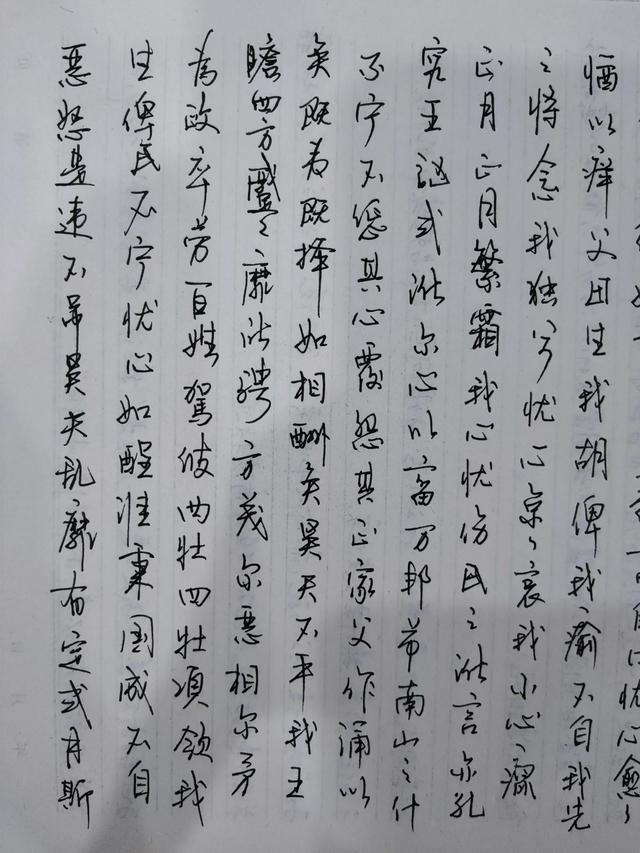 恶怒是违不吊昊天乱靡有定式月斯
生俾民不宁忧心如酲谁秉国成不自
為政卒劳百姓駕彼四牡四牡项领我
瞻四方蹙々靡所骋方茂尔恶相尔矛
矣既夷既怿如相酬矣昊天不平我王
不宁不惩其心覆怨其正家父作诵以
究王讻式讹尔心以畜万邦节南山之什
正月正月繁霜我心忧伤民之讹言亦孔
之将念我独兮忧心京々哀我小心癙
以痒父母生我胡俾我瘉不自我先
自口忧心愈々